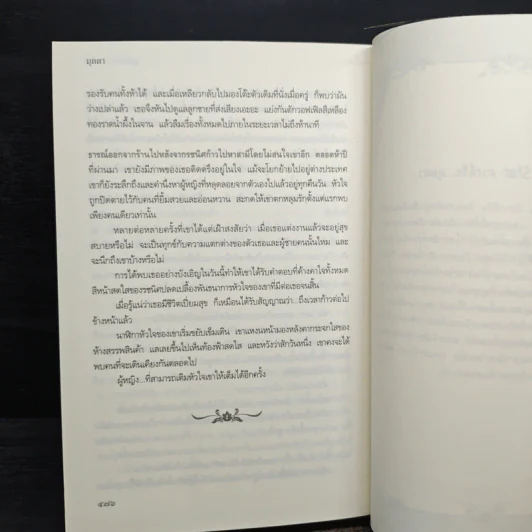 มุลลา
รองรับคนทั้งห้าได้ และเมื่อเหลียวกลับไปมองโต๊ะตัวเดิมที่นั่งเมื่อครู่ ก็พบว่ามัน
ว่างเปล่าแล้ว เธอจึงหันไปดูแลลูกชายที่ส่งเสียงเอะอะ แย่งกันตักวอฟเฟิลสีเหลือง
ทองราดน้ำผึ้งในจาน แล้วลืมเรื่องทั้งหมดไปภายในระยะเวลาไม่ถึงห้านาที
ธารณ์ออกจากร้านไปหลังจากรชนิศก้าวไปหาสามีโดยไม่สนใจเขาอีก ตลอดห้าปี
ที่ผ่านมา เขายังมีภาพของเธอติดตรึงอยู่ในใจ แม้จะโยกย้ายไปอยู่ต่างประเทศ
เขาก็ยังระลึกถึงและคำนึงหาผู้หญิงที่หลุดลอยจากตัวเองไปแล้วอยู่ทุกคืนวัน หัวใจ
ถูกปิดตายไว้กับคนที่ยิ้มสวยและอ่อนหวาน สะกดให้เขาตกหลุมรักตั้งแต่แรกพบ
เพียงคนเดียวเท่านั้น
หลายต่อหลายครั้งที่เขาได้แต่เฝ้าสงสัยว่า เมื่อเธอแต่งงานแล้วจะอยู่สุข
สบายหรือไม่ จะเป็นทุกข์กับความแตกต่างของตัวเธอและผู้ชายคนนั้นไหม และ
จะนึกถึงเขาบ้างหรือไม่
การได้พบเธออย่างบังเอิญในวันนี้ทำให้เขาได้รับคำตอบที่ค้างคาใจทั้งหมด
สีหน้าสดใสของรชนิศปลดเปลื้องพันธนาการหัวใจของเขาที่มีต่อเธอจนสิ้น
เมื่อรู้แน่ว่าเธอมีชีวิตเปี่ยมสุข ก็เหมือนได้รับสัญญาณว่า...ถึงเวลาก้าวต่อไป
ข้างหน้าแล้ว
นาฬิกาหัวใจของเขาเริ่มขยับเข็มเดิน เขาแหงนหน้ามองหลังคากระจกใสของ
ห้างสรรพสินค้า แลเลยขึ้นไปเห็นท้องฟ้าสดใส และหวังว่าสักวันหนึ่ง เขาคงจะได้
พบคนที่จะเดินเคียงกันตลอดไป
ผู้หญิง...ที่สามารถเติมหัวใจเขาให้เต็มได้อีกครั้ง
๔๗๖